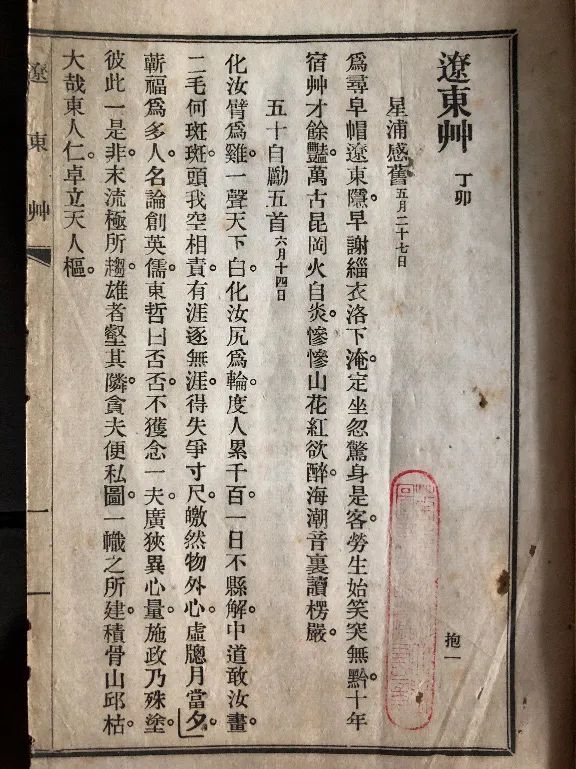 遼東艸 丁卯
抱一
星浦感舊 五月二十七日
爲尋皁帽遼東隱。早謝緇衣洛下淹。定坐忽驚身是客。勞生始笑突無黔。十年
宿艸才餘豔。萬古昆岡火自炎。慘慘山花紅欲醉。海潮音裏讀楞嚴。
五十自勵五首 六月十四日
化汝臂爲雞。一聲天下白。化汝尻爲輪。度人累千百。一日不縣解。中道敢汝畫。
二毛何斑斑。頭我空相責。有涯逐無涯。得失爭寸尺。皦然物外心。虛牕月當夕。
蘄福爲多人。名論創英儒。東哲曰否否。不獲念一夫。廣狹異心量。施政乃殊塗。
彼此一是非。末流極所趨。雄者壑其隣。貪夫便私圖。一幟之所建。積骨山邱枯。
大哉東人仁。卓立天人樞。
遼東艸
一